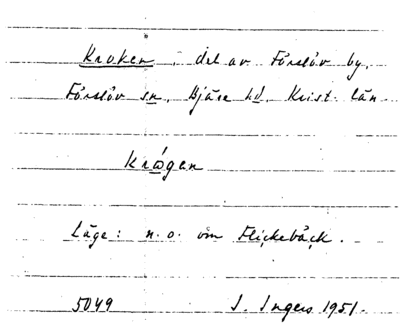 Kroken, del av Förslöv by,
Förslöv sn, Bjäre hd, Krist. län.
krǻgen
Läge: n.o. om Flickebäck.
5049 I. Ingers 1951.